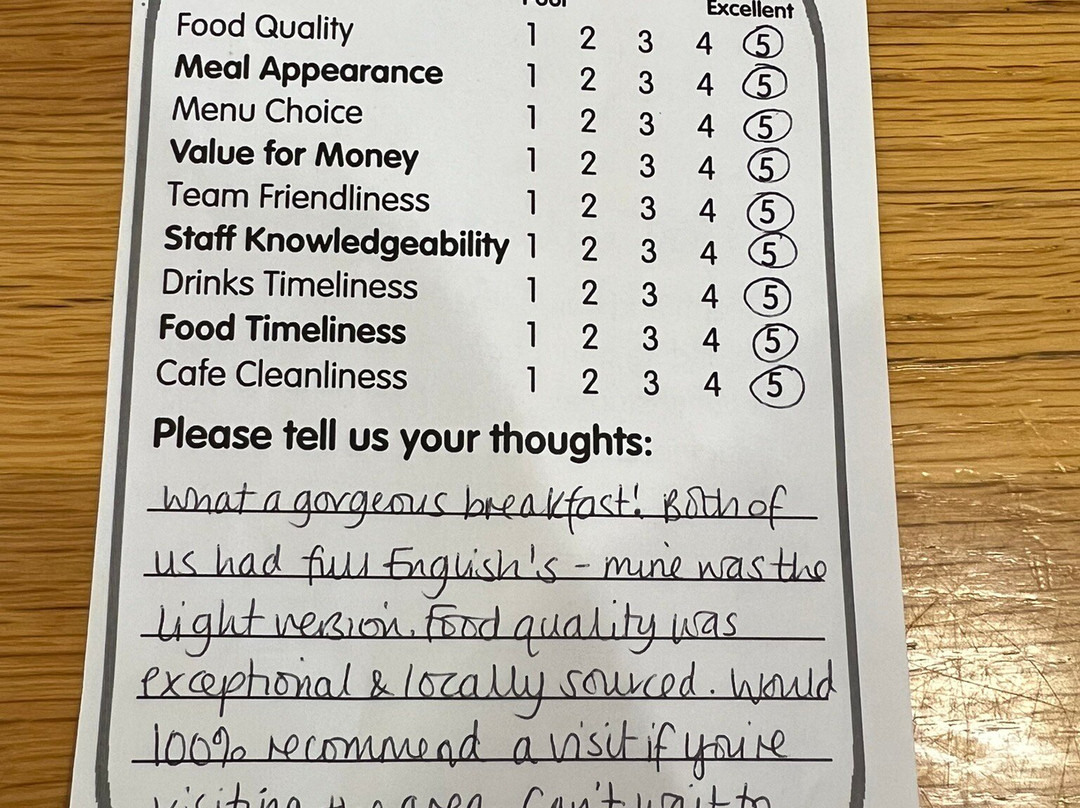 Poor Excellent
Food Quality 1 2 3 4 5
Meal Appearance 1 2 3 4 5
Menu Choice 1 2 3 4 5
Value for Money 1 2 3 4 5
Team Friendliness 1 2 3 4 5
Staff Knowledgeability 1 2 3 4 5
Drinks Timeliness 1 2 3 4 5
Food Timeliness 1 2 3 4 5
Cafe Cleanliness 1 2 3 4 5
Please tell us your thoughts:
What a gorgeous breakfast! Both of
us had full English's - mine was the
light version. Food quality was
exceptional & locally sourced. Would
100% recommend a visit if you're
visiting area. Can't wait to